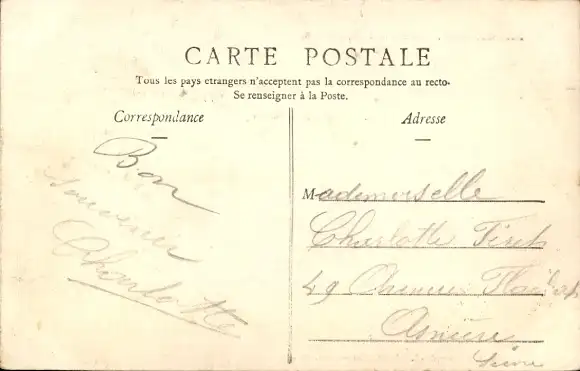 CARTE POSTALE
Tous les pays etrangers n'acceptent pas la correspondance au recto.
Se renseigner à la Poste.
Correspondance
Adresse
Bon
souvenir
Charlotte
Mademoiselle
Charlotte
49
Asnières
Seine